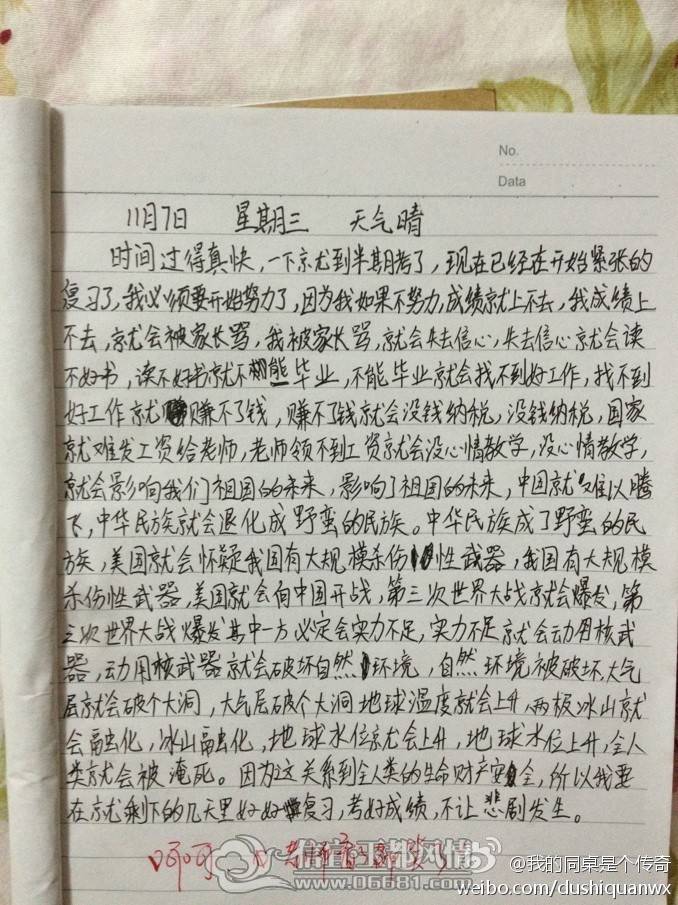 No.
Data
11月7日 星期三 天气晴
时间过得真快,一下就到半期考了,现在已经在开始紧张的
复习了,我必须要开始努力了,因为我如果不努力,成绩就上不去,我成绩上
不去,就会被家长骂,我被家长骂,就会失去信心,失去信心就会读
不好书,读不好书就不能毕业,不能毕业就会找不到好工作,找不到
好工作就赚不了钱,赚不了钱就会没钱纳税,没钱纳税,国家
就难发工资给老师,老师领不到工资就会没心情教学,没心情教学,
就会影响我们祖国的未来,影响了祖国的未来,中国就难以腾
飞,中华民族就会退化成野蛮的民族。中华民族成了野蛮的民
族,美国就会怀疑我国有大规模杀伤性武器,我国有大规模
杀伤性武器,美国就会向中国开战,第三次世界大战就会爆发,第
三次世界大战爆发其中一方必定会实力不足,实力不足就会动用核武
器,动用核武器就会破坏自然环境,自然环境被破坏,大气
层就会破个大洞,大气层破个大洞地球温度就会上升,两极冰山就
会融化,冰山融化,地球水位就会上升,地球水位上升,全人
类就会被淹死。因为这关系到全人类的生命财产安全,所以我要
在就剩下的几天里好好复习,考好成绩,不让悲剧发生。
呵呵 老师看了都笑了
信宜玉都风情
www.06681.com
@我的同桌是个传奇
weibo.com/dushiquanwx